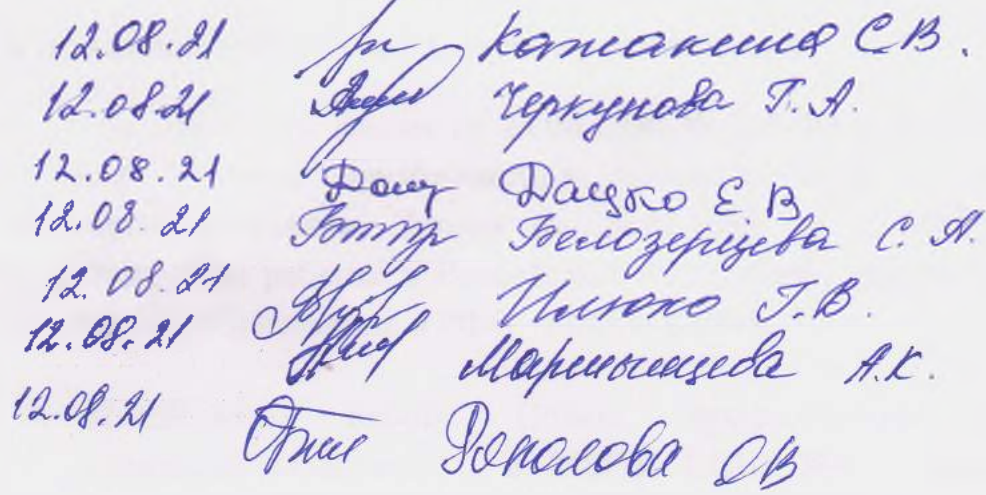 12.08.21 Каткакина С В.
12.08.21 Черкунова Т. А.
12.08.21 Дацко Е. В
12.08.21 Белозерцева С. А.
12.08.21 Илюко Г. В.
12.08.21 Мартынцева А.К.
12.08.21 О В